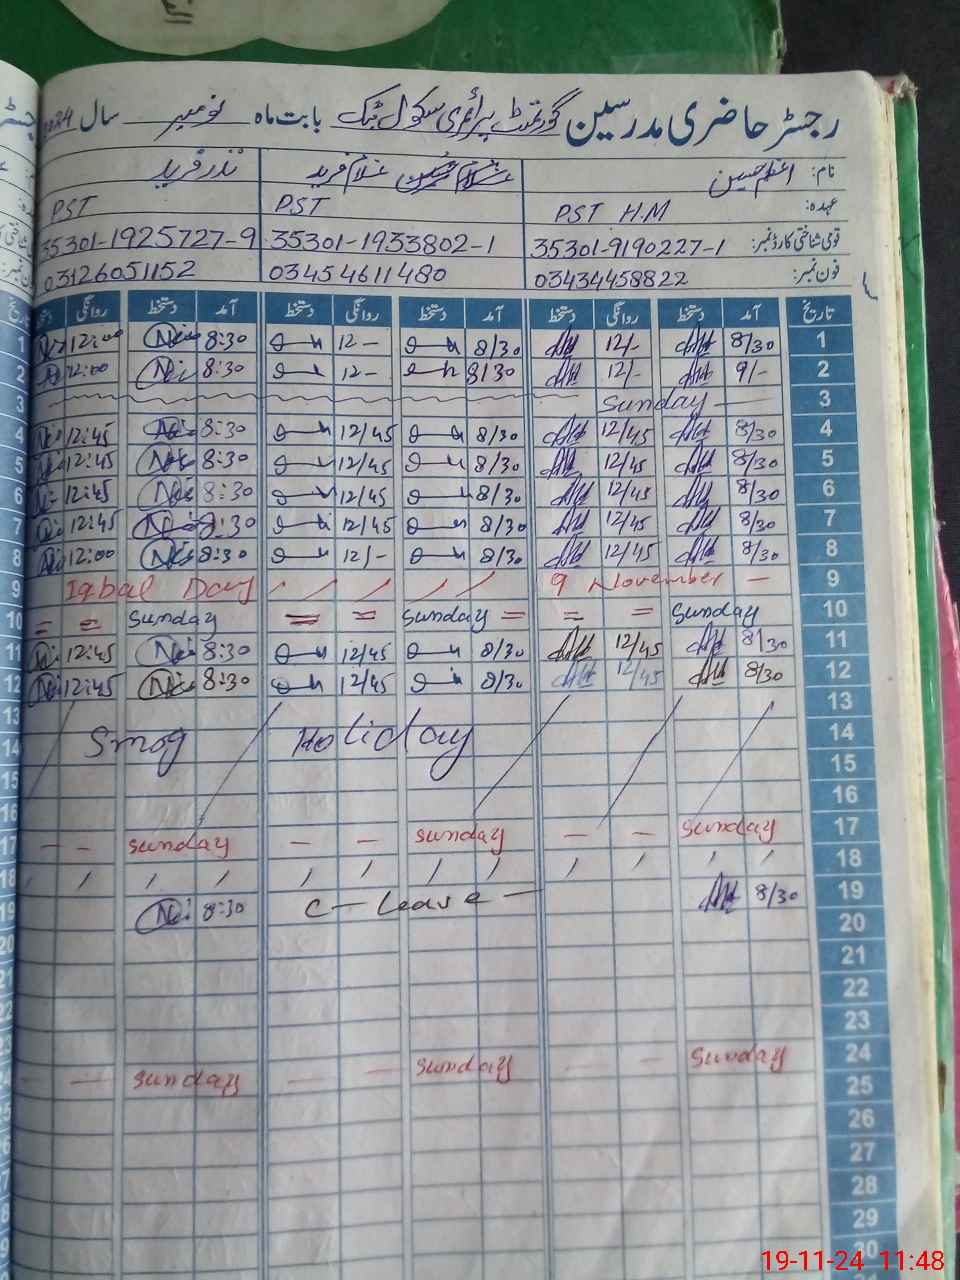 رجسٹر حاضری مدرسین گورنمنٹ پرائمری سکول بابت ماہ نومبر سال 2024
نام: اعظم حسین غلام فرید نذر فرید
عہدہ: PST H.M PST PST
قومی شناختی کارڈ نمبر: 35301-9190227-1 35301-1933802-1 35301-1925727-9
فون نمبر: 03434458822 03454611480 03126051152
تاریخ آمد دستخط روانگی دستخط آمد دستخط روانگی دستخط آمد دستخط روانگی
1 8/30 12/- 8/30 12- 8:30 12:00
2 9/- 12/- 8/30 12- 8:30 12:00
3 Sunday
4 8/30 12/45 8/30 12/45 8:30 12:45
5 8/30 12/45 8/30 12/45 8:30 12:45
6 8/30 12/45 8/30 12/45 8:30 12:45
7 8/30 12/45 8/30 12/45 8:30 12:45
8 8/30 12/45 8/30 12/- 8:30 12:00
Iqbal Day / / / / 9 November - 9
= = Sunday = = Sunday = = = Sunday 10
11 8/30 12/45 8/30 12/45 8:30 12:45
12 8/30 12/45 8/30 12/45 8:30 12:45
13
Smog Holiday 14
15
16
- - Sunday - - Sunday - - Sunday 17
18
8:30 C-Leave- 8/30 19
20
21
22
23
- - Sunday - - Sunday - - Sunday 24
25
26
27
28
29
30
19-11-24 11:48